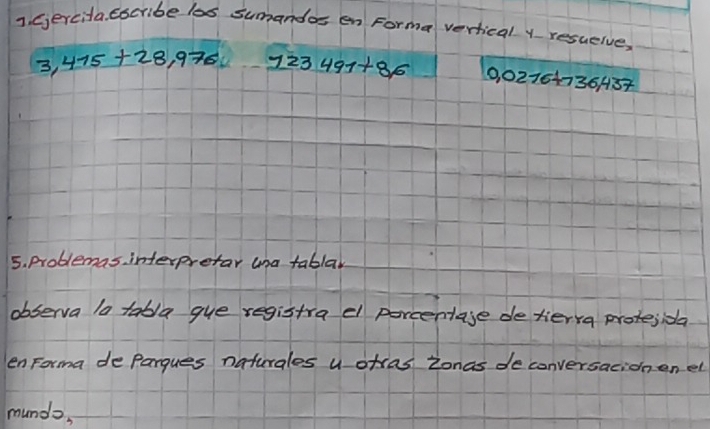 1.Ejercita.escribe los sumandos en Forma vertical y resuelve,
3,415 + 28,976 123 491 + 8,6 0,0216 + 136,437
5.Problemas.interpretar una tabla.
observa la tabla que registra el porcentaje de tierra protejida
en Forma de Parques naturales u otras zonas de conversacion en el
mundo,